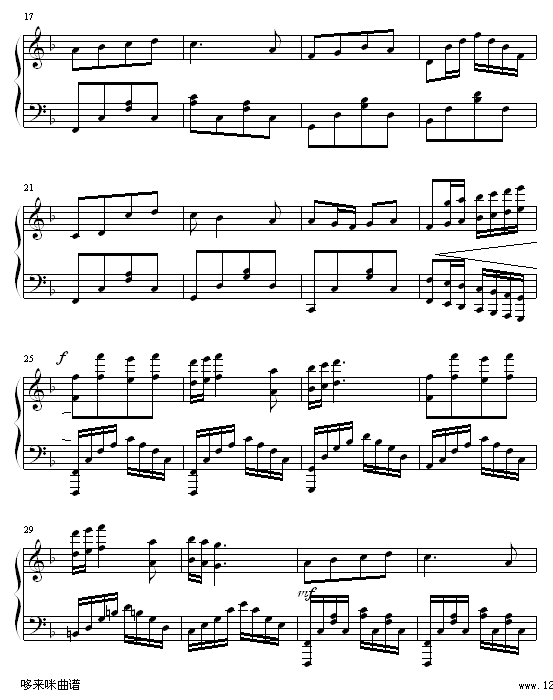 17
21
25
f
29
mf
哆来咪曲谱
www.12